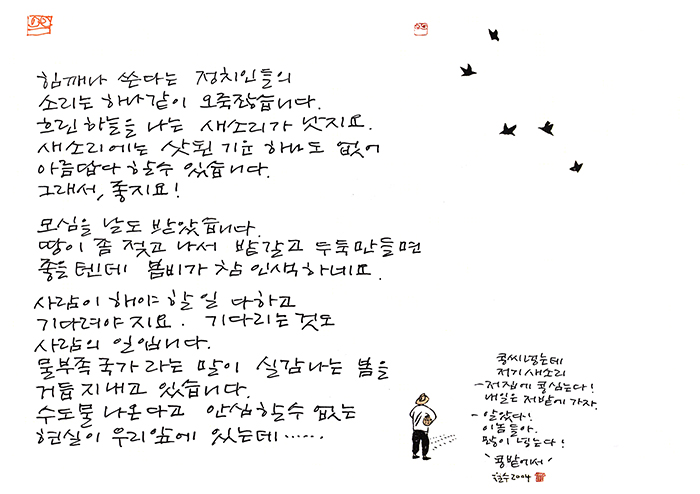 힘깨나 쓴다는 정치인들의
소리는 하나같이 오죽잖습니다.
흐린 하늘을 나는 새소리가 낫지요.
새소리에는 삿된 기운 하나도 없어
아름답다 할수 있습니다.
그래서, 좋지요!
모심을 날도 받았습니다.
땅이 좀 젖고 나서 밭갈고 두둑만들면
좋을텐데 봄비가 참 인색하네요.
사람이 해야 할 일 다하고
기다려야지요. 기다리는 것도
사람의 일입니다.
물부족국가라는 말이 실감나는 봄을
거듭 지내고 있습니다.
수돗물 나온다고 안심할수 없는
현실이 우리앞에 있는데……
콩씨넣는데
저기 새소리
-저집에 콩심는다!
내일은 저밭에 가자.
-알았다!
이놈들아.
많이 넣는다!
'콩밭에서'
철수 2004